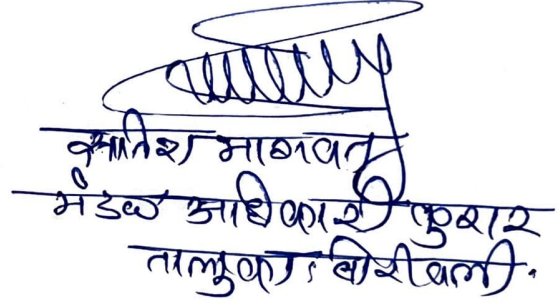 भागवत
मंडळ अधिकारी कुरार
तालुका बोरीवली.